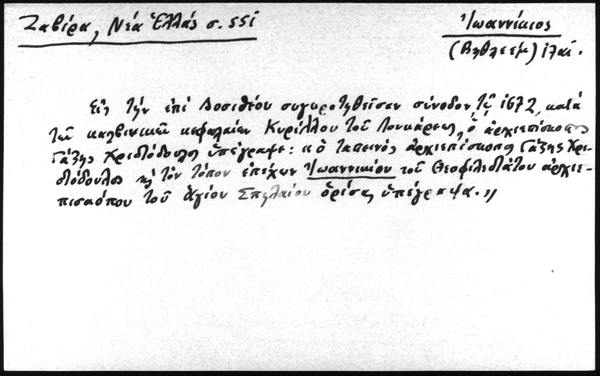 Ζαβίρα, Νέα Ἑλλάς σ. 551
Ἰωαννίκιος
(Βηθλεὲμ)
Εἰς τὴν ἐπὶ Δοσιθέου συγκροτηθεῖσαν σύνοδον τῷ 1672, κατὰ
τῶν καλβινικῶν κεφαλαίων Κυρίλλου τοῦ Λουκάρεως, ὁ ἀρχιεπίσκοπος
Γάζης Χριστόδουλος ὑπέγραψε: «ὁ ταπεινὸς ἀρχιεπίσκοπος Γάζης Χρι-
στόδουλος κ τὸν τόπον ἐπέχων Ἰωαννικίου τοῦ Θεοφιλεστάτου ἀρχιε-
πισκόπου τοῦ ἁγίου Σπηλαίου ὁρίσας ὑπέγραψα.»